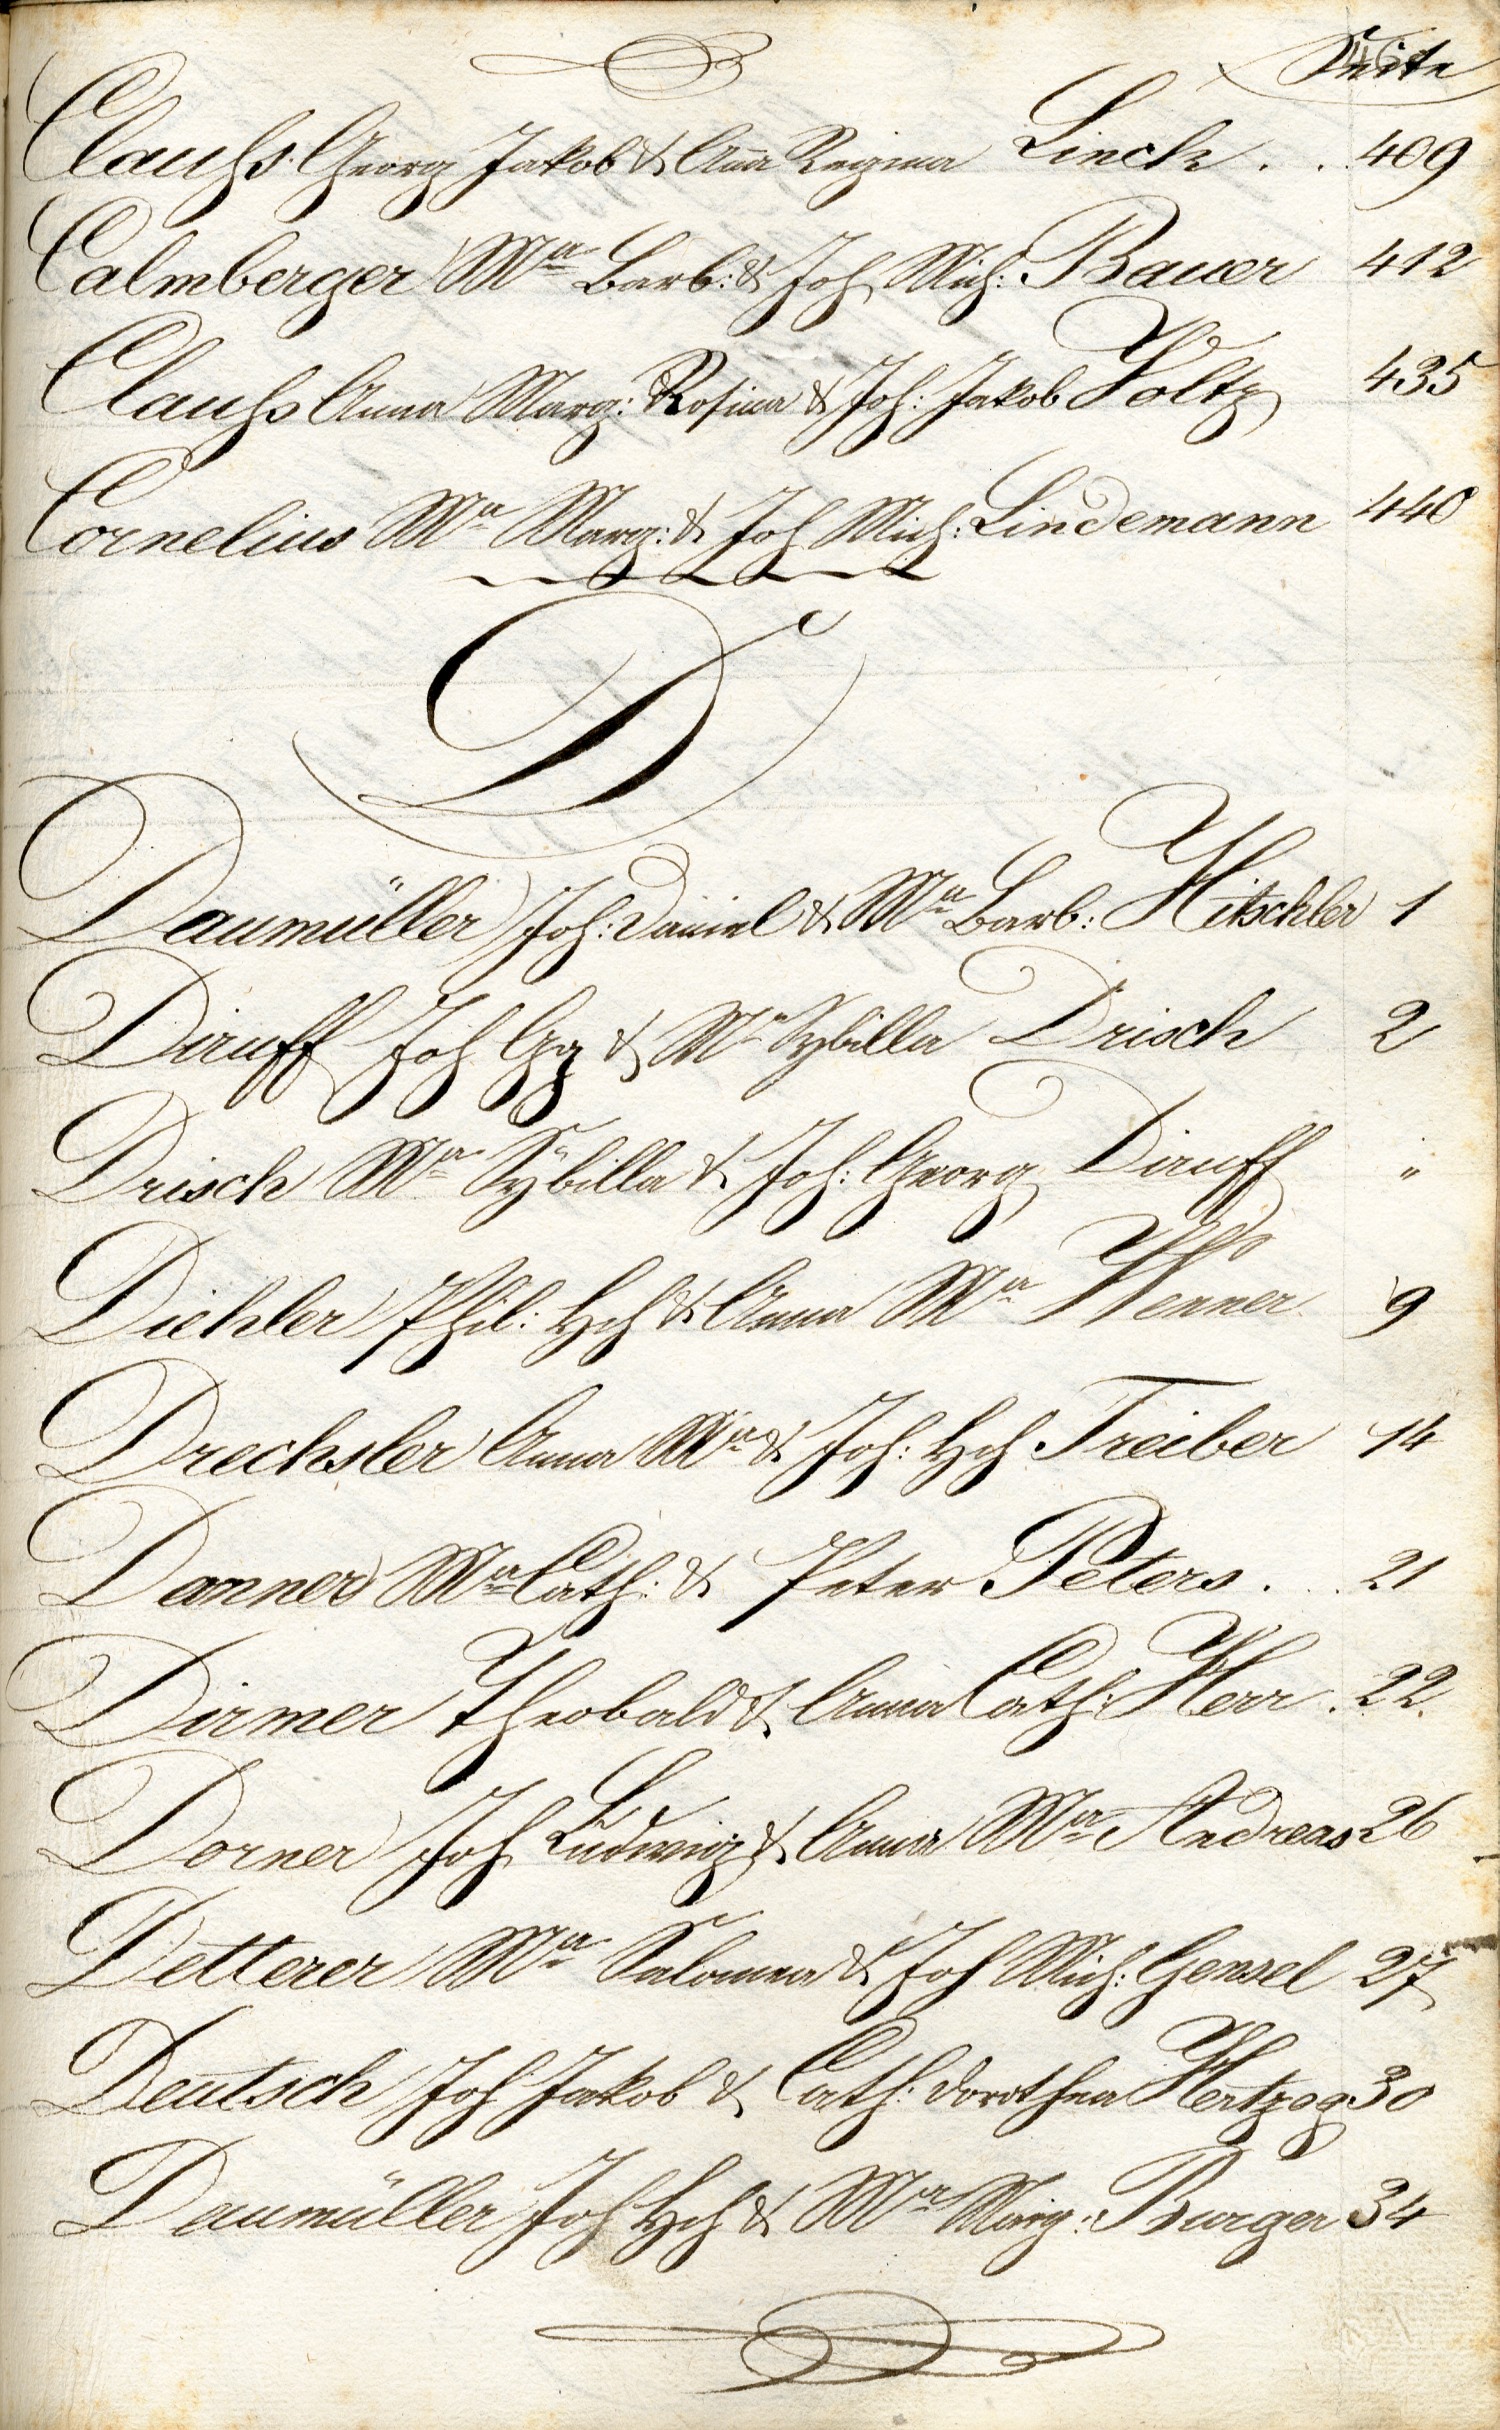 Seite
Clauhs Georg Jakob & Anna Regina Linck . . 409
Calmberger Ma Barb: & Joh Mich: Bauer 412
Clauhs Anna Marg: Rosina & Joh: Jakob Voltz 435
Cornelius Ma Marg: & Joh Mich: Lindemann 440
D
Daumüller Joh: Daniel & Ma Barb: Hitschler 1
Diruff Joh Gg & Ma Sybilla Drisch 2
Drisch Ma Sÿbilla & Joh: Georg Diruff "
Diehler Phil: Hch & Anna Ma Wenner 9
Drechsler Anna Ma & Joh: Hch Treiber 14
Danner Ma Cath: & Peter Peters . . . 21
Dirmer Theobald & Anna Cath: Herr . 22.
Dorner Joh Ludwig & Anna Ma Andreas 26
Detterer Ma Salomea & Joh Mich: Gensel 27
Deutsch Joh Jakob & Cath: Dorothea Hertzog 30
Daumüller Joh Hch & Ma Marg: Burger 34